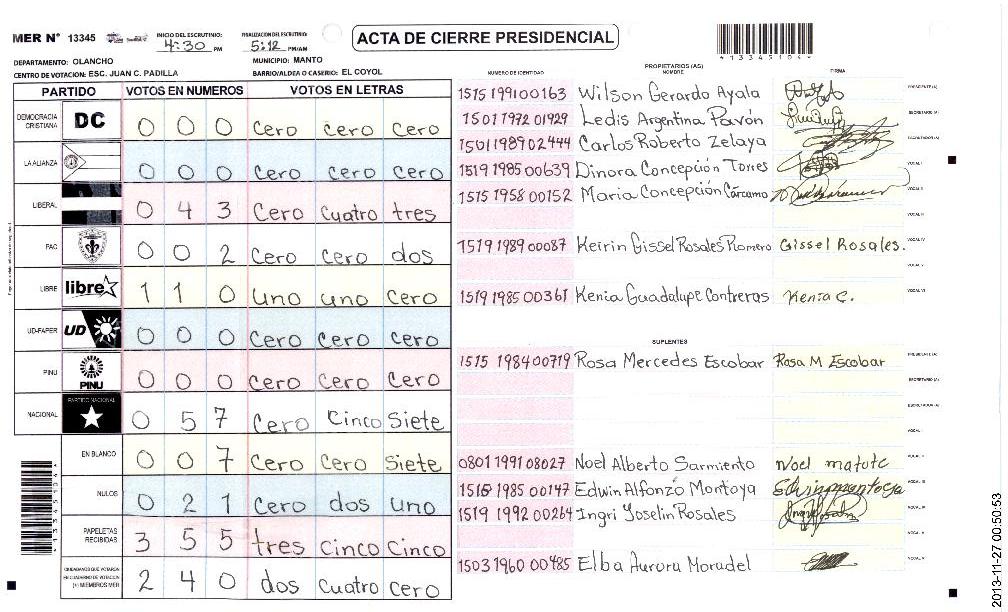 MER N° 13345
INICIO DEL ESCRUTINIO: 4:30 PM
FINALIZACION DEL ESCRUTINIO: 5:12 PM/AM
ACTA DE CIERRE PRESIDENCIAL
*13345104*
DEPARTAMENTO: OLANCHO
MUNICIPIO: MANTO
CENTRO DE VOTACION: ESC. JUAN C. PADILLA
BARRIO/ALDEA O CASERIO: EL COYOL
PARTIDO VOTOS EN NUMEROS VOTOS EN LETRAS
DEMOCRACIA CRISTIANA DC 0 0 0 Cero cero cero
LA ALIANZA 0 0 0 Cero cero cero
LIBERAL 0 4 3 Cero Cuatro tres
PAC 0 0 2 Cero cero dos
LIBRE libre 1 1 0 uno uno cero
UD-FAPER UD 0 0 0 Cero Cero Cero
PINU PINU 0 0 0 Cero Cero Cero
NACIONAL PARTIDO NACIONAL 0 5 7 Cero Cinco Siete
EN BLANCO 0 0 7 Cero Cero Siete
NULOS 0 2 1 Cero dos uno
PAPELETAS RECIBIDAS 3 5 5 tres Cinco Cinco
CIUDADANOS QUE VOTARON EN CUADERNO DE VOTACION (+) MIEMBROS MER 2 4 0 dos Cuatro cero
NUMERO DE IDENTIDAD PROPIETARIOS (AS) NOMBRE FIRMA
1515 1991 00163 Wilson Gerardo Ayala PRESIDENTE (A)
1501 1972 01929 Ledis Argentina Pavón SECRETARIO (A)
1501 1989 02444 Carlos Roberto Zelaya ESCRUTADOR (A)
1519 1985 00639 Dinora Concepción Torres VOCAL I
1515 1958 00152 Maria Concepción Cárcamo VOCAL II
VOCAL III
1519 1989 00087 Keirin Gissel Rosales Romero Gissel Rosales. VOCAL IV
VOCAL V
1519 1985 00361 Kenia Guadalupe Contreras Kenia C. VOCAL VI
SUPLENTES
1515 1984 00719 Rosa Mercedes Escobar Rosa M Escobar PRESIDENTE (A)
SECRETARIO (A)
ESCRUTADOR (A)
VOCAL I
0801 1991 08027 Noel Alberto Sarmiento Noel matute VOCAL II
1515 1985 00147 Edwin Alfonzo Montoya VOCAL III
1519 1992 00264 Ingri Yoselin Rosales VOCAL IV
VOCAL V
1503 1960 00485 Elba Aurora Moradel VOCAL VI
*13345104*
2013-11-27 00:50:53